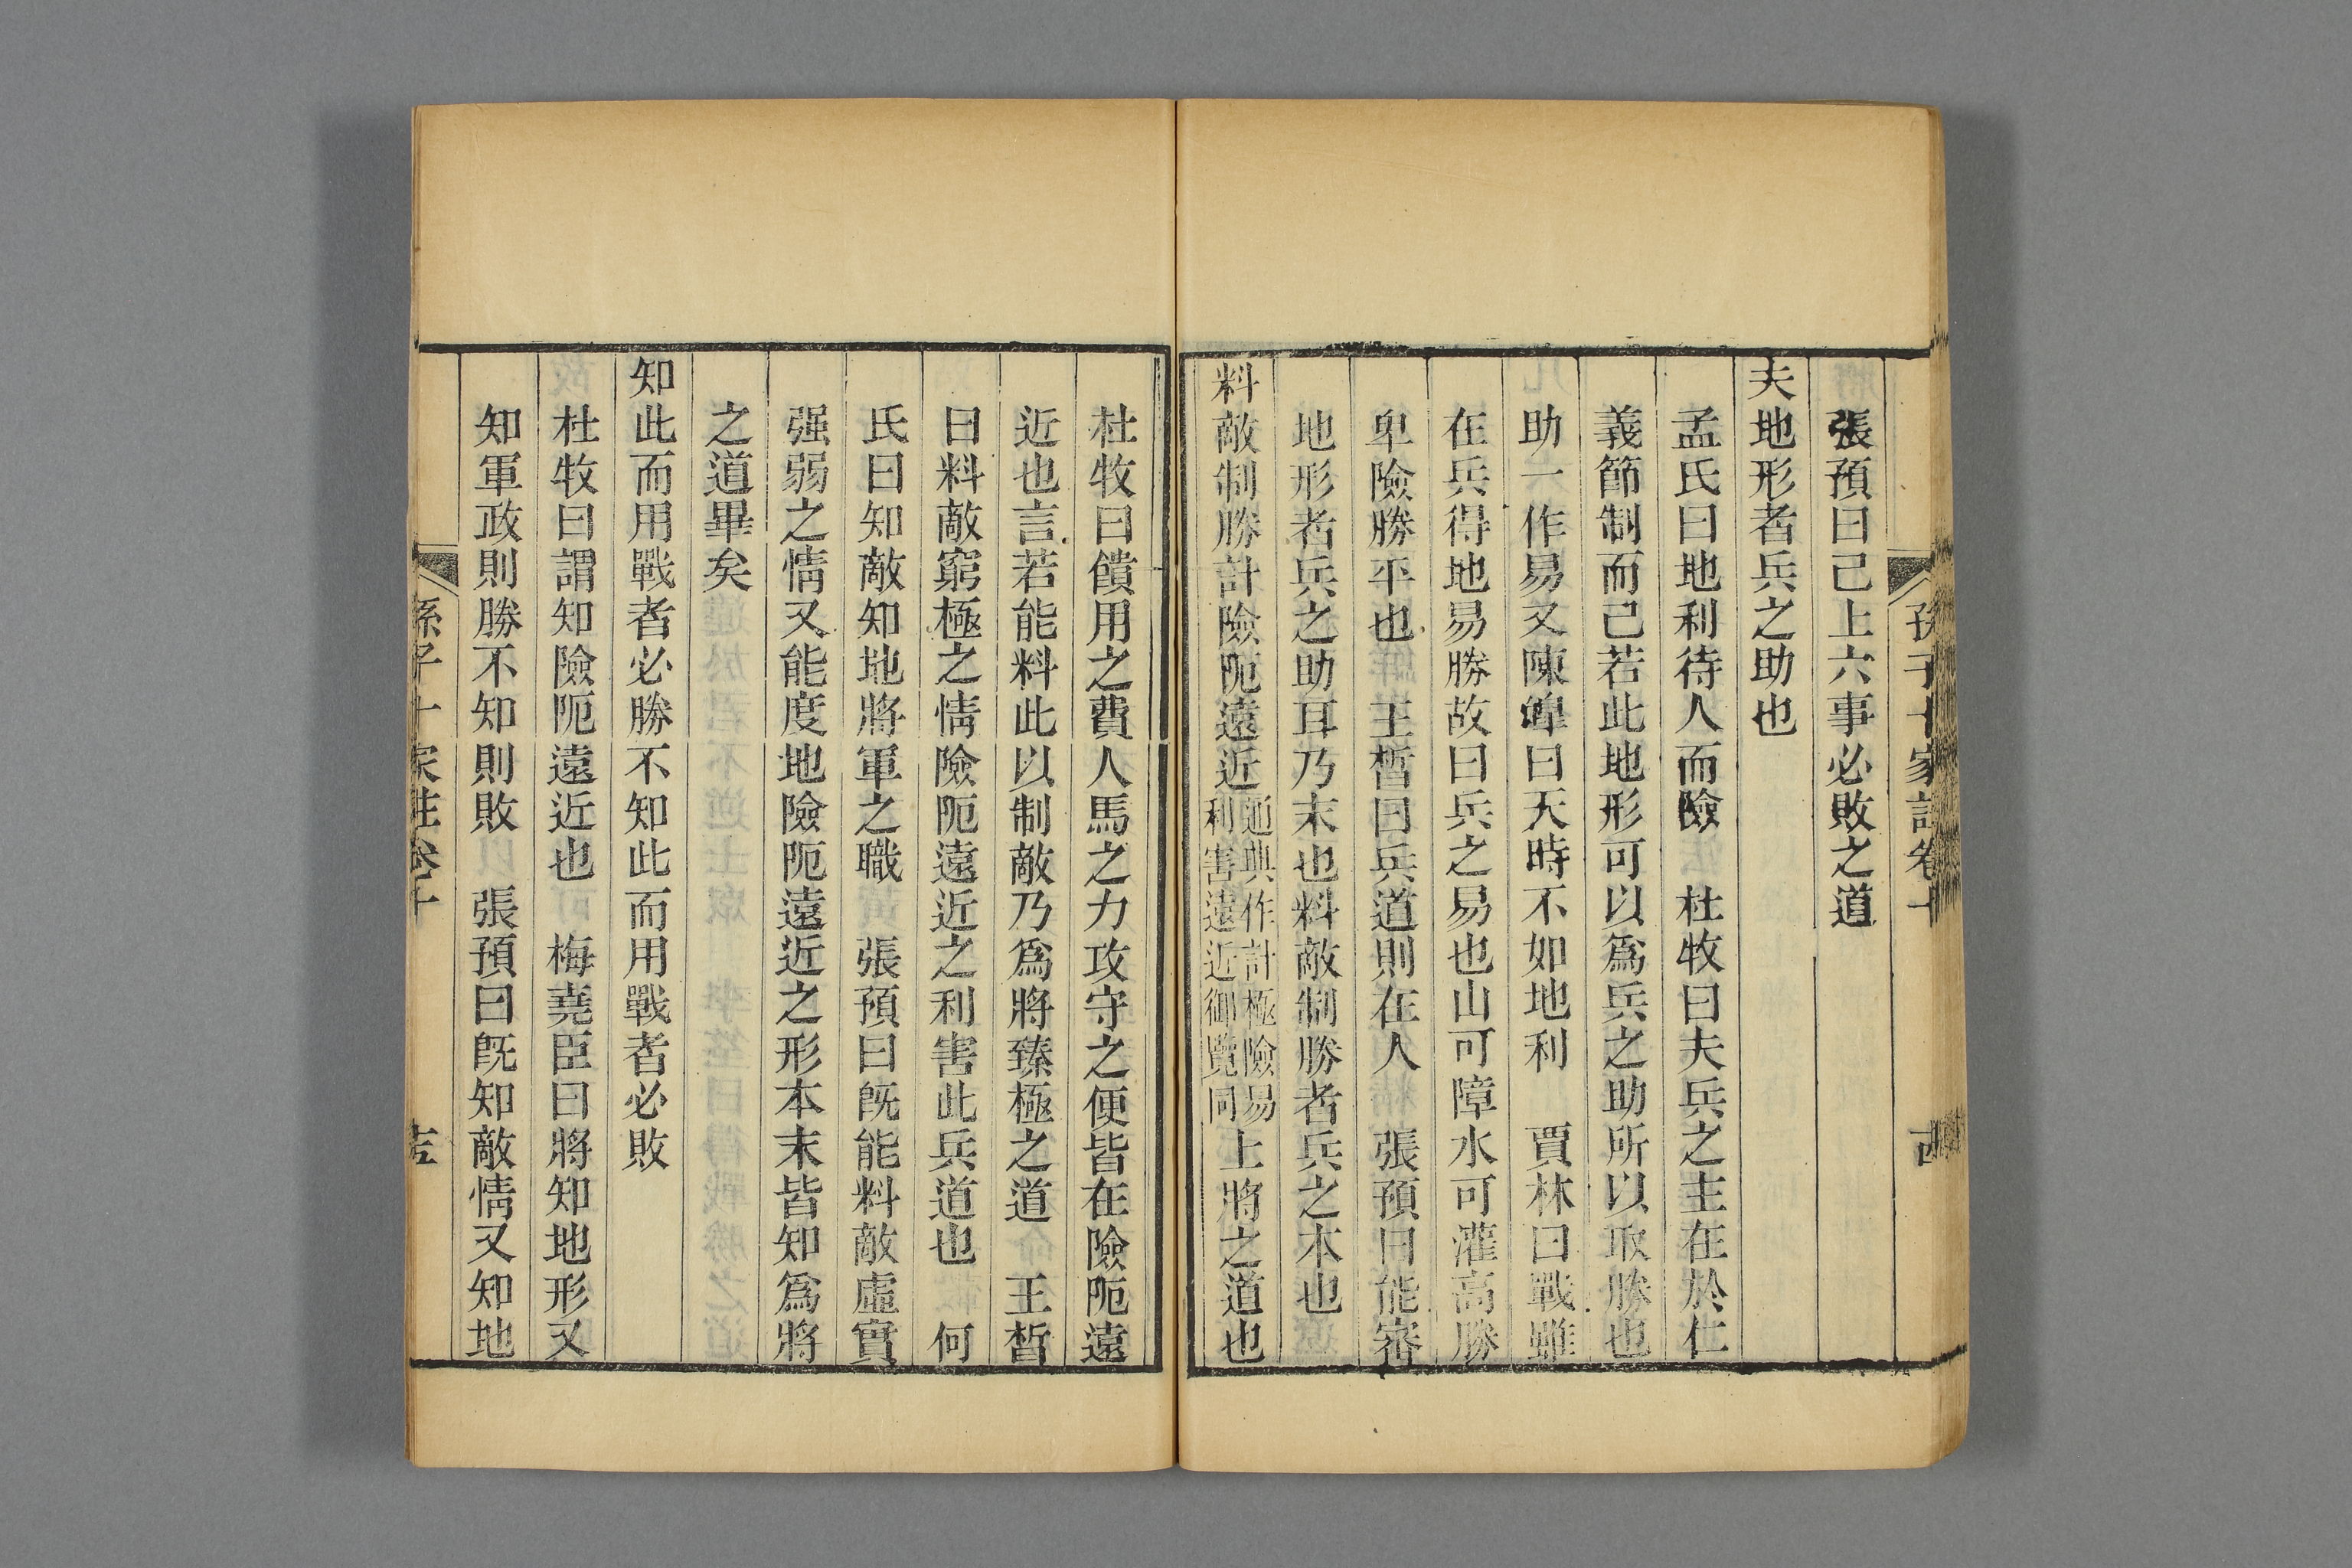 孫子十家註卷十
張預曰己上六事必敗之道
夫地形者兵之助也
孟氏曰地利待人而險 杜牧曰夫兵之主在於仁
義節制而己若此地形可以爲兵之助所以取勝也
助一作易又陳皥曰天時不如地利 賈林曰戰雖
在兵得地易勝故曰兵之易也山可障水可灌高勝
卑險勝平也 王晳曰兵道則在人 張預曰能審
地形者兵之助耳乃末也料敵制勝者兵之本也
料敵制勝計險阨遠近通典作計極險易利害遠近御覽同上將之道也
杜牧曰饋用之費人馬之力攻守之便皆在險阨遠
近也言若能料此以制敵乃爲將臻極之道 王晳
曰料敵窮極之情險阨遠近之利害此兵道也 何
氏曰知敵知地將軍之職 張預曰旣能料敵虛實
强弱之情又能度地險阨遠近之形本末皆知爲將
之道畢矣
知此而用戰者必勝不知此而用戰者必敗
杜牧曰謂知險阨遠近也 梅堯臣曰將知地形又
知軍政則勝不知則敗 張預曰旣知敵情又知地
孫子十家註卷十